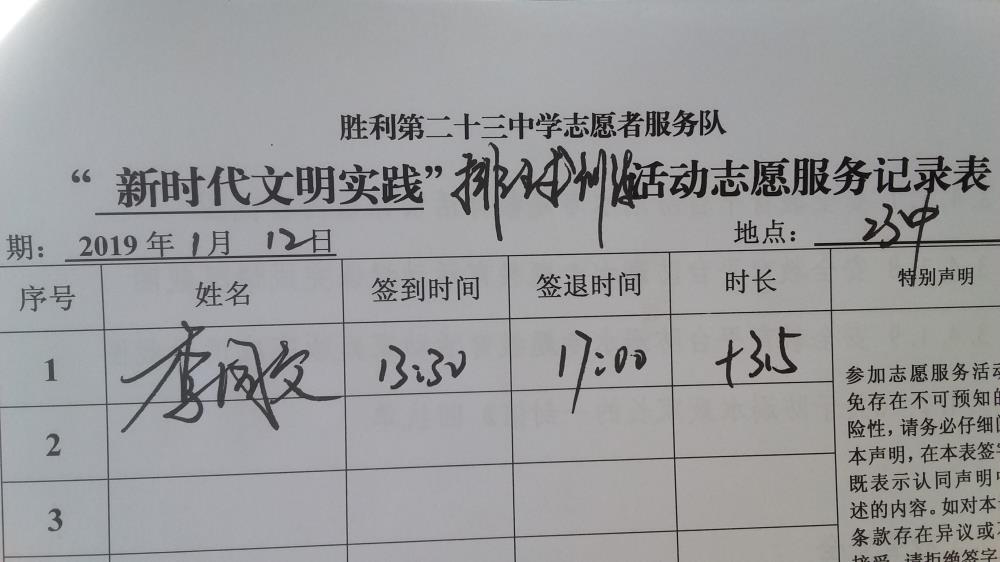 胜利第二十三中学志愿者服务队
“新时代文明实践”排球训练活动志愿服务记录表
期：2019年1月12日 地点：23中
序号 姓名 签到时间 签退时间 时长 特别声明
1 李同文 13:30 17:00 +3.5
2
3
参加志愿服务活动
免存在不可预知的
险性，请务必仔细阅
本声明，在本表签字
既表示认同声明中
述的内容。如对本
条款存在异议或不
接受，请拒绝签字